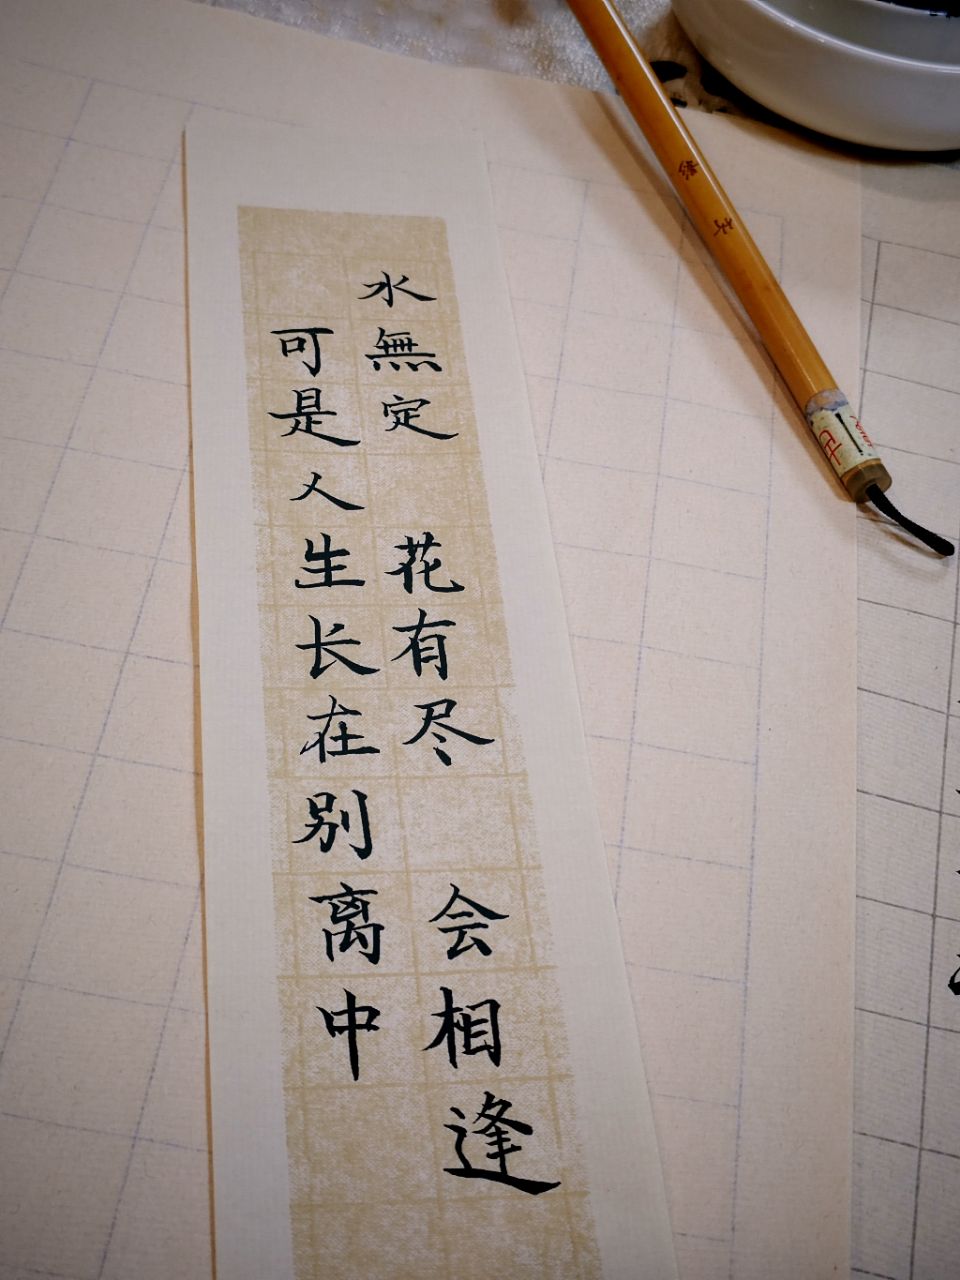 水無定 花有尽 会相逢
可是人生长在别离中